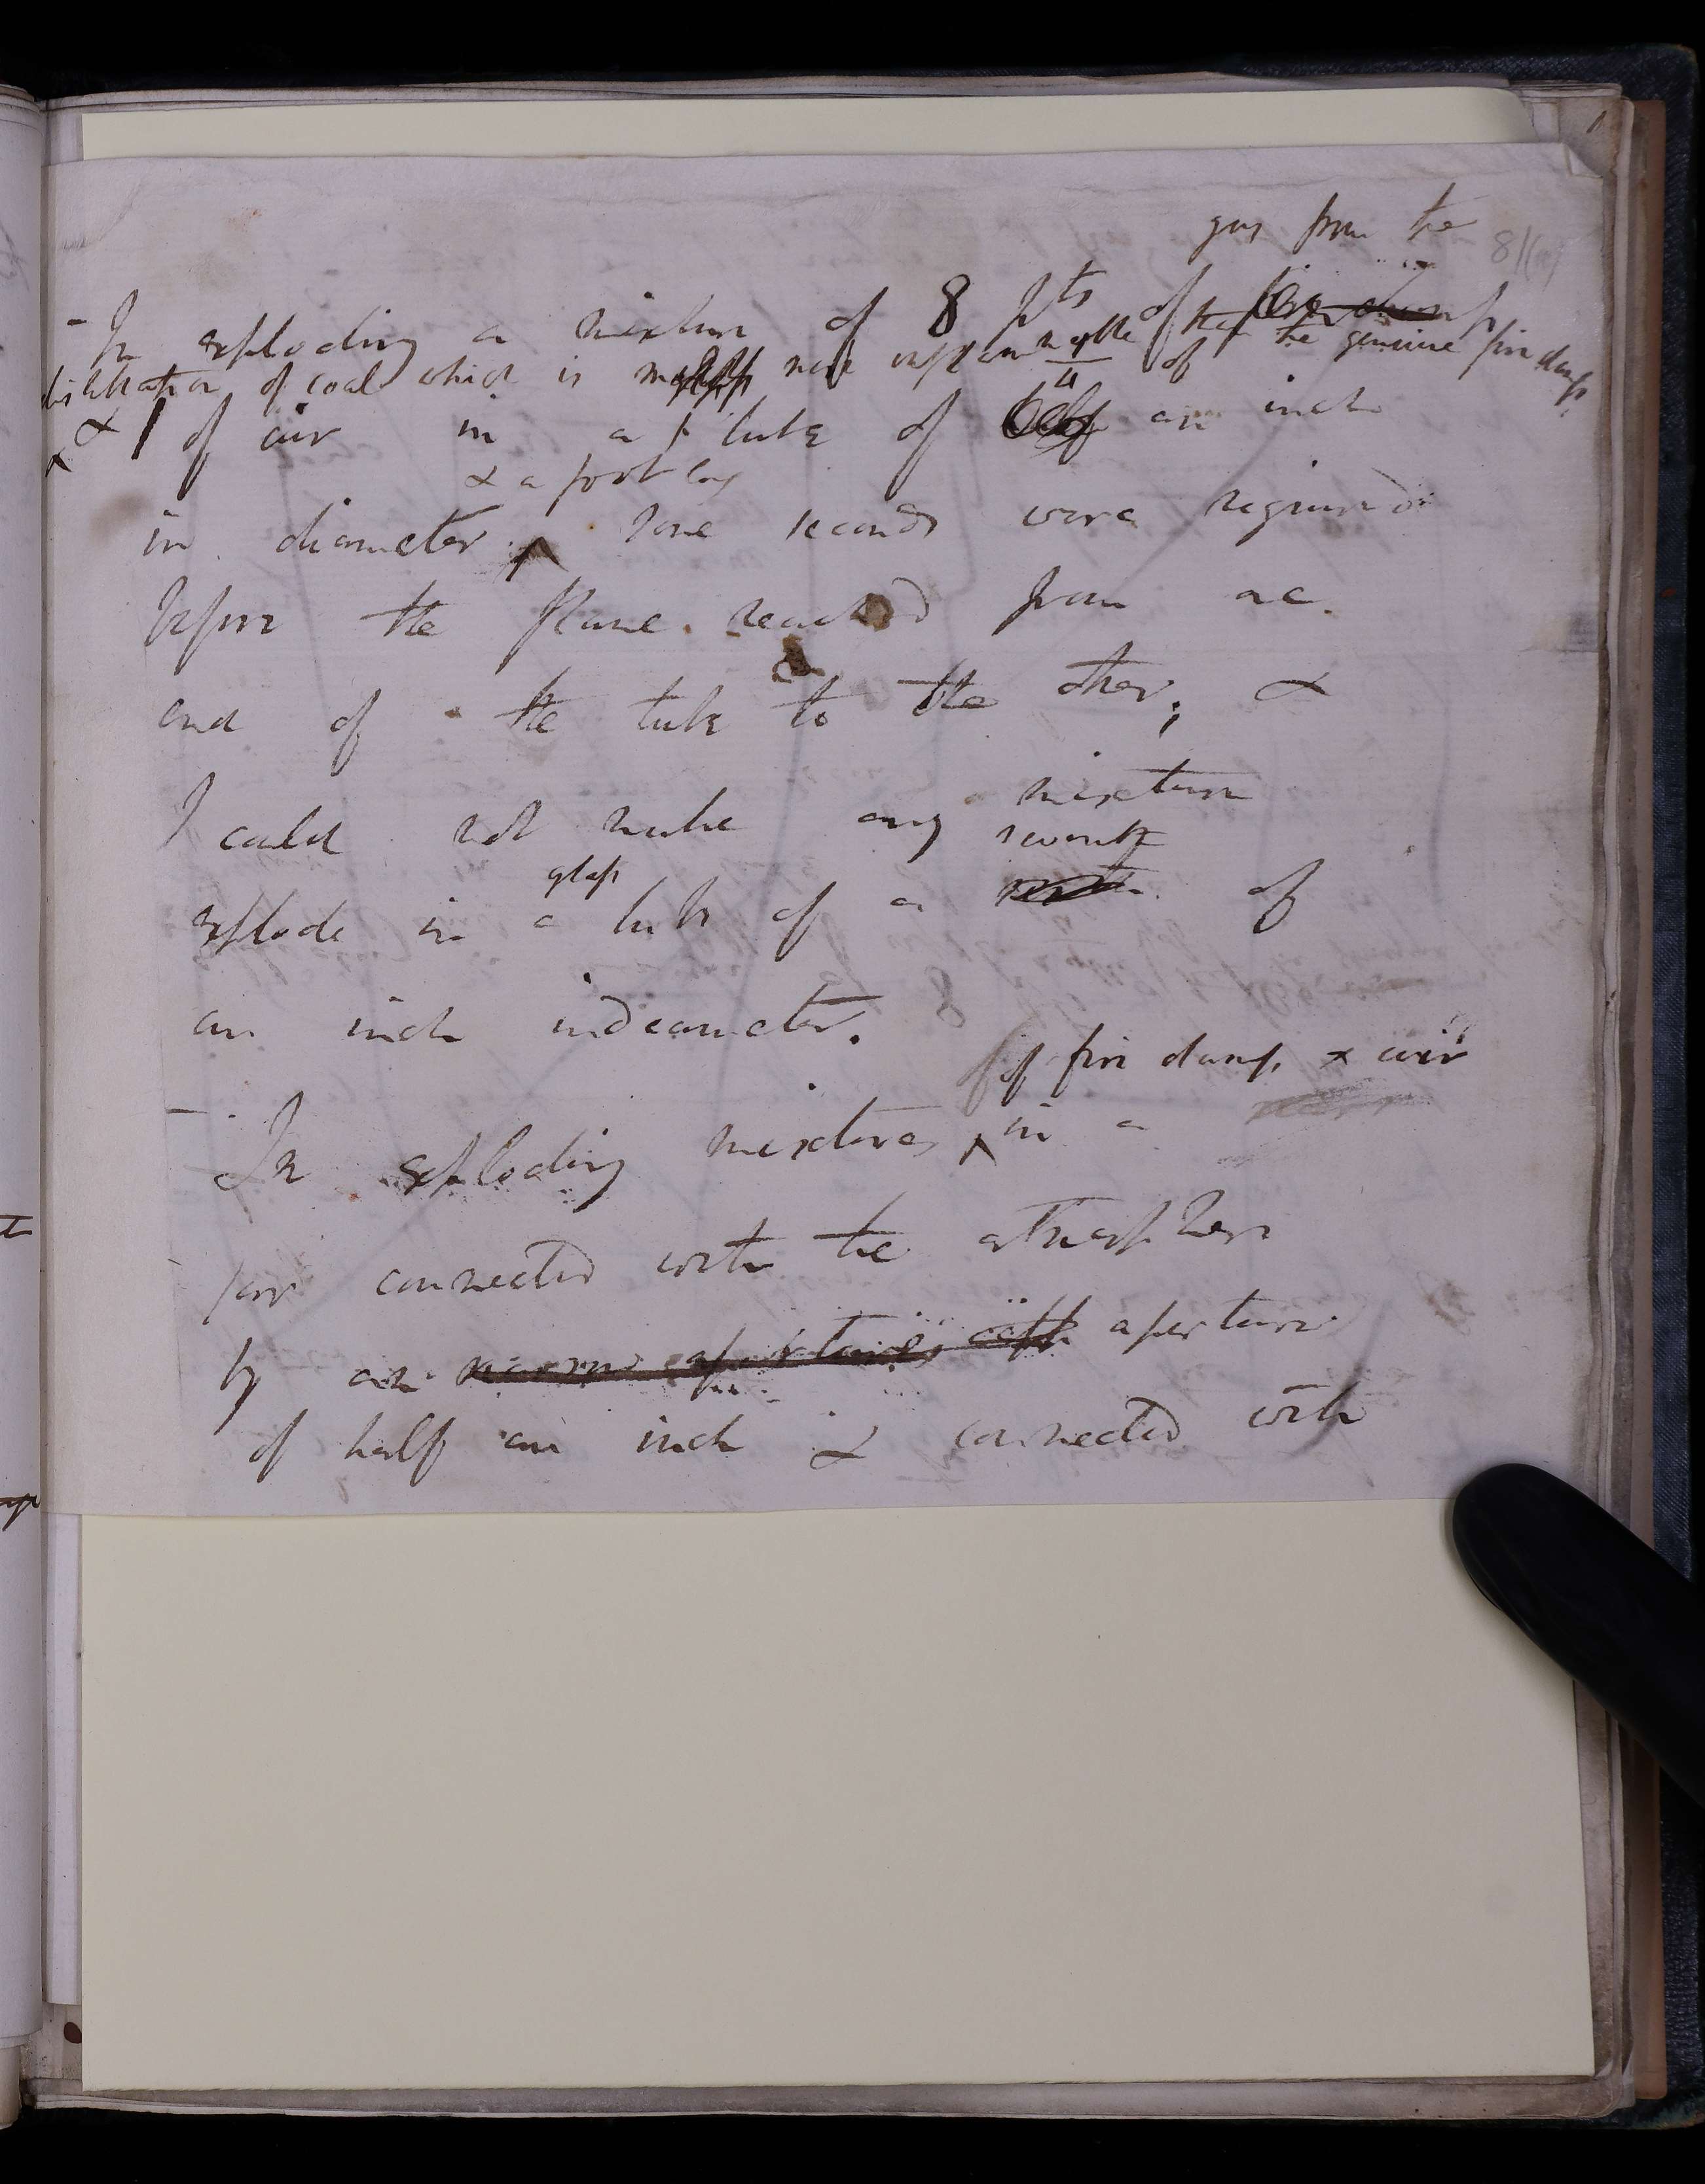 gas from the
81(a)
- In exploding a mixture of 8 pts of fire damp
distillation of coal which is more inflammable than the genuine fire damp
& 1 of air in a tube of 1/4 of half an inch
& a foot long
in diameter some seconds were required
before the flame reached from one
end of the tube to the other; &
I could not make any mixture
seventh
glass
explode in a tube of a of
an inch in diameter.
of fire damp & air
- In exploding mixtures in a
jar connected with the atmosphere
by an narrow apertures aperture
of half an inch & connected with